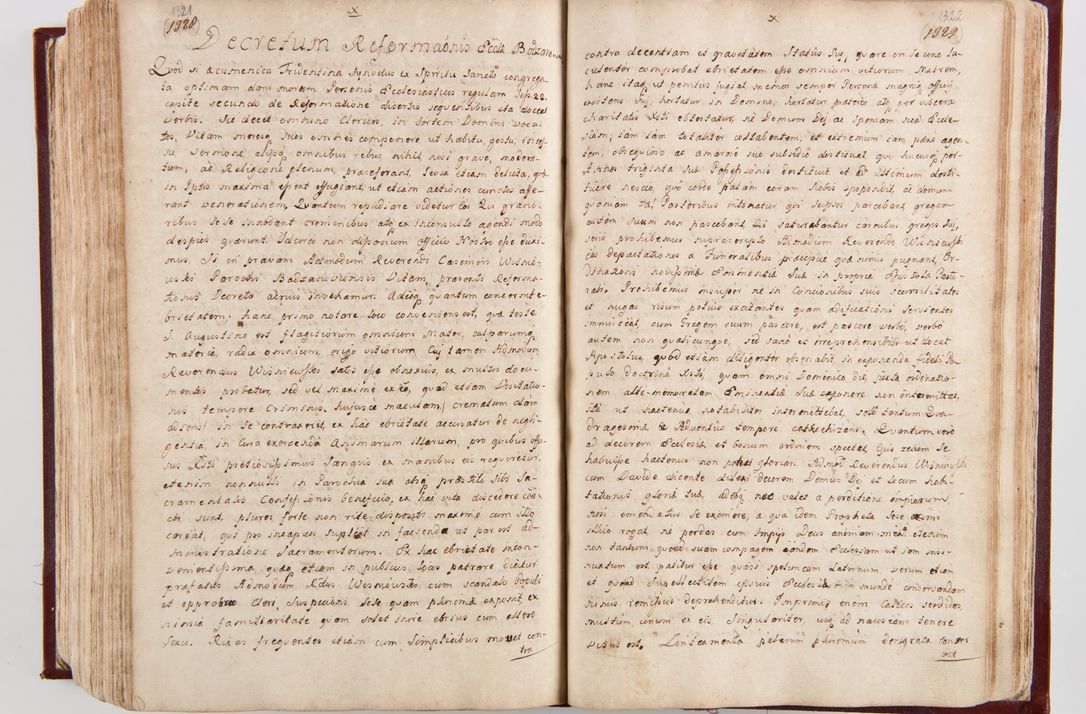 1321
(1328)
x
Decretum Reformaōnis Eccłæ
Quod si æcumenica Tridentina Synodus ex Spiritu Sancto congrega
ta optimam dans morem Personis Ecclesiasticis regulam Seſs. 22.
capite secundo de Reformatione disertis sequentibus ita docet
verbis. Sic decet omnino Clericos, in sortem Domini voca-
tos, Vitam moresq suos omnes componere ut habitu, gestu, inceſ-
su sermone, alijsq omnibus rebus, nihil nisi grave, modera-
tum, ac Religione plenum, præseferant, levia etiam delicta, quæ
in Ipsis maxima eſsent effugiant, ut etiam actiones cunctis affe-
rant venerationem, Quantum repudiare videtur los Qui gravio-
ribus se se innodant criminibus atq ex inconsulto agendi modo
despici quærunt. Idcirco non disponim officij Nostro eſse duxi-
mus. Si in pravam Admodum Reverendi Casimiri Wisnie-
uski Parochi Badzaniensis Vitam, præsenti Reforma-
tionis Decreto acrius invehamur. Adeoq quantum concernit e-
brietatem: hanc primo notare loco conveniens est, quæ teste
S. Augustino est flagitiorum omnium Mater, culparumq
materia, radix omnium, origo vitiorum, Cui tamen Admodum
Reverendus Wisniewski satis eſse obnoxius, ex multis docu-
mentis probatur, sed vel maxime ex eo, quod etiam Visitatio-
nis tempore Criminis, hujusce maculam, crematum clam
adsons, in se contraxerit, ex hac ebrietate accusatur de negli-
gentia, in Cura exercenda Animarum Illarum, pro quibus effu-
sus Xsti pretiosiſsimus Sanguis ex manibus eis requiretur.
etenim nonnulli in Parochia sua absq præstitis sibi Sa-
cramentalis Confeſsionis beneficio, ex hac vita discedere coa-
cti sunt, plures forte non rite dispositi maxime cum illo
careat, qui pro incapaci supleat in facienda ut par est ad-
ministratione Sacramentorum. Ex hac ebrietate incon-
venientiſsima quæq etiam in publicis locis patrare dicitur
præfatus Admodum Rdus Wisniewski cum scandalo Populi
et opprobrio Cleri, Suspicioni sese quam plurimæ exposuit ex
nimia familiaritate quam solet inire ebrius cum altero
Sexu. Rixas frequenter etiam cum simplicibus movet con-
tra
1322
(1329)
x
contra decentiam et gravitatem Status sui, quare
comprobat ebrietatem eſse omnium vitiorum Matrem,
hanc itaq ut penitus fugiat, memor semper Personæ magniq officij
existens sui, hortatur, in Domino, hortatur paterne atq per viscera
charitatis Xsti obtestatur, ne Domum Dei ac sponsam suā Eccle-
siam, iam iam totaliter collabentem, et extremum iam pæne agon-
tem, obsequioso ac amaroꝛ suo subsidio destituat, quo hucusq per
Annos triginta suæ Poſseſsionis destituit et ad ultimum desti-
tuere nescio, quo corde palam coram Nobis spopondit, at domin-
quoniam talj Pastoribus intonatur qui seipsos pascebant, gregem
autem suum non pascebant. Qui saturabantur carnibus gregis sui,
serio prohibemus suprascripto Admodum Reverendo Wisniewski
ces depactationes a Funeralibus præcipue quæ nimis pugnant, Or-
dinationi novissimæ Eminentiæ Suæ in propria Epistola Pasto-
rali. Prohibemus insuper ne in Concionibus suis scurrilitates
et nugas risum potius excitantes quam ædificationi servientes
immisceat, cum Gregem suum pascere, est pascere verbo, verbo
autem non qualicunque, sed sano et irreprehensibili ut docet
Apostolus, quod etiam diligenter observabit in exponenda fideli Po-
pulo doctrina Xsti, quam omni Dominico die, juxta ordinatio-
nem alte-memoratam Eminentiæ Suæ exponere non intermittet,
sicut hactenus notabiliter intermittebat, soli tantum Qua-
dragesimæ & Adventus tempore catechizans. Quantum vero
ad decorem Ecclesiæ et bonum ordinem spectat, Ejus zelum Se
habuiſse hactenus non potest gloriari Admod Reverendus Wisniewski
cum Davide dicente dilexi decorem Domus Dei et locum habi-
tationis gloriæ suæ, adeoq nec valet a perditione impiorum
nisi emendatus se eximere, a qua idem Propheta sese eximi
illico rogat ne perdas cum Impijs Deus animam meā etenim
non tantum quoad suam compagem eandem Ecclesiam ut iam insi-
nuatum est, patitur eſse quasi speluncam Latronum verum etiam
et quoad Supellectilem ipsius Ecclesiæ munde conservandam
nimis remiſsus deprehenditur. Imprimis enim Calices sordidos
multum, unum ex eis, singulariter, usq ad nauseam tenere
visus est. Linteamenta paterum plurimum denigrata conser
vet